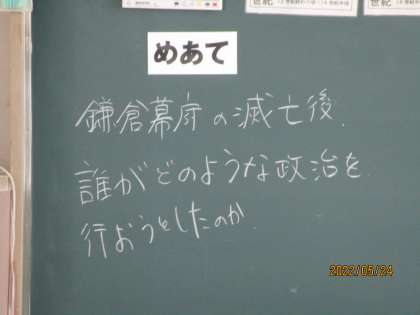 世紀
世紀
めあて
鎌倉幕府の滅亡後、
誰がどのような政治を
行おうとしたのか
2022/05/24